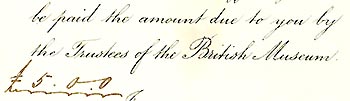 be paid the amount due to you by
the Trustees of the British Museum.
£5.0.0